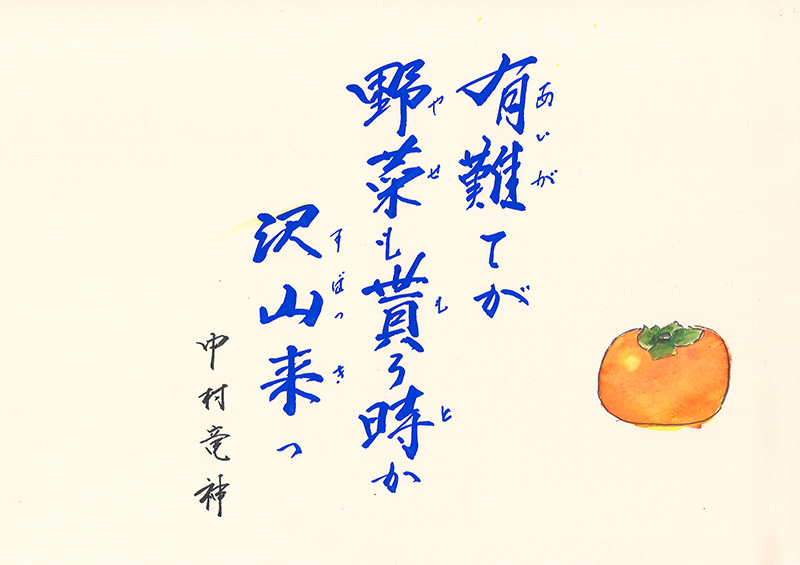 有難てが
あいが
野菜も貰ろ時か
やせ も と
沢山来っ
すばっ き
中村竜神